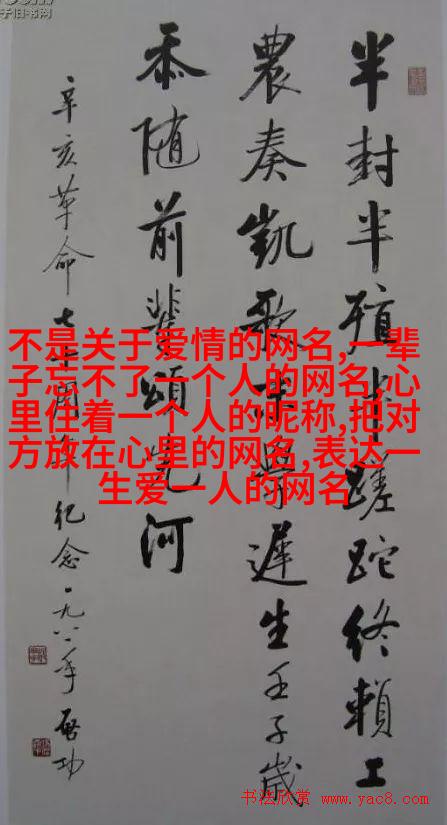 子旧书网
半封半殖半蹉跎终賴工
農奏凱歌末學遲生壬子歲
忝随前輩頌先河
辛亥革命七十周年纪念一九八一年啓功
不是关于爱情的网名,一辈
子忘不了一个人的网名,心
里住着一个人的昵称,把对
方放在心里的网名,表达一
生爱一人的网名
书法欣赏 www.yac8.com